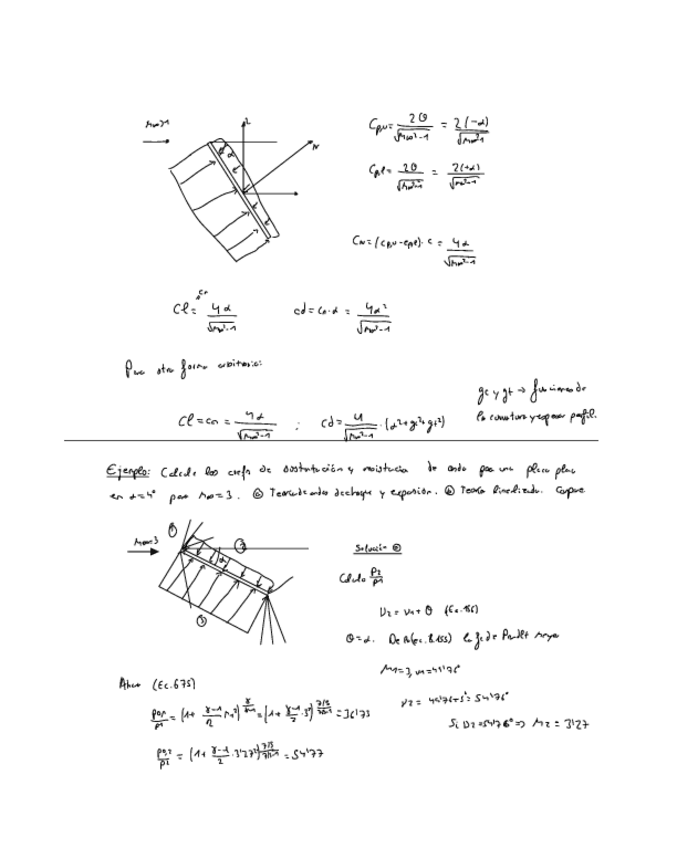 M∞>1
L
N
α
Cpu = 2θ/√(M∞²-1) = 2(-α)/√(M∞²-1)
Cpl = 2θ/√(M∞²-1) = 2(+α)/√(M∞²-1)
CN = (Cpu - Cpl)·c = 4α/√(M∞²-1)
Cn
Cl = 4α/√(M∞²-1)
cd = Cn·α = 4α²/√(M∞²-1)
Para otra forma arbitraria:
gc y gt → funciones de
la curvatura y espesor perfil.
Cl = cn = 4α/√(M∞²-1) ; cd = 4/√(M∞²-1) · (α²+gc²+gt²)
Ejemplo: Calcule los coefs de sustentación y resistencia de onda para una placa plana
en α=4° para M∞=3. ⓐ Teoría de ondas de choque y expansión. ⓑ Teoría linealizada. Compare
M∞=3
①
②
③
α
Solución ⓐ
Cálculo P2/P1
ν2 = ν1 + θ (Ec.
θ=α. De la (ec. 8.155) la fc de Prandtl Meyer
M1=3, ν1=49'76°
ν2 = 49'76+5° = 54'76°
Si ν2=54'76° ⇒ M2 = 3'27
Ahora (Ec. 675)
p0,1/p1 = (1+ (γ-1)/2 M1²)^(γ/(γ-1)) = (1+ (γ-1)/2 ·3²)^(7/5/(7/5-1)) = 36'73
p0,2/p2 = (1+ (γ-1)/2 ·3'27²)^(7/5/(7/5-1)) = 54'77